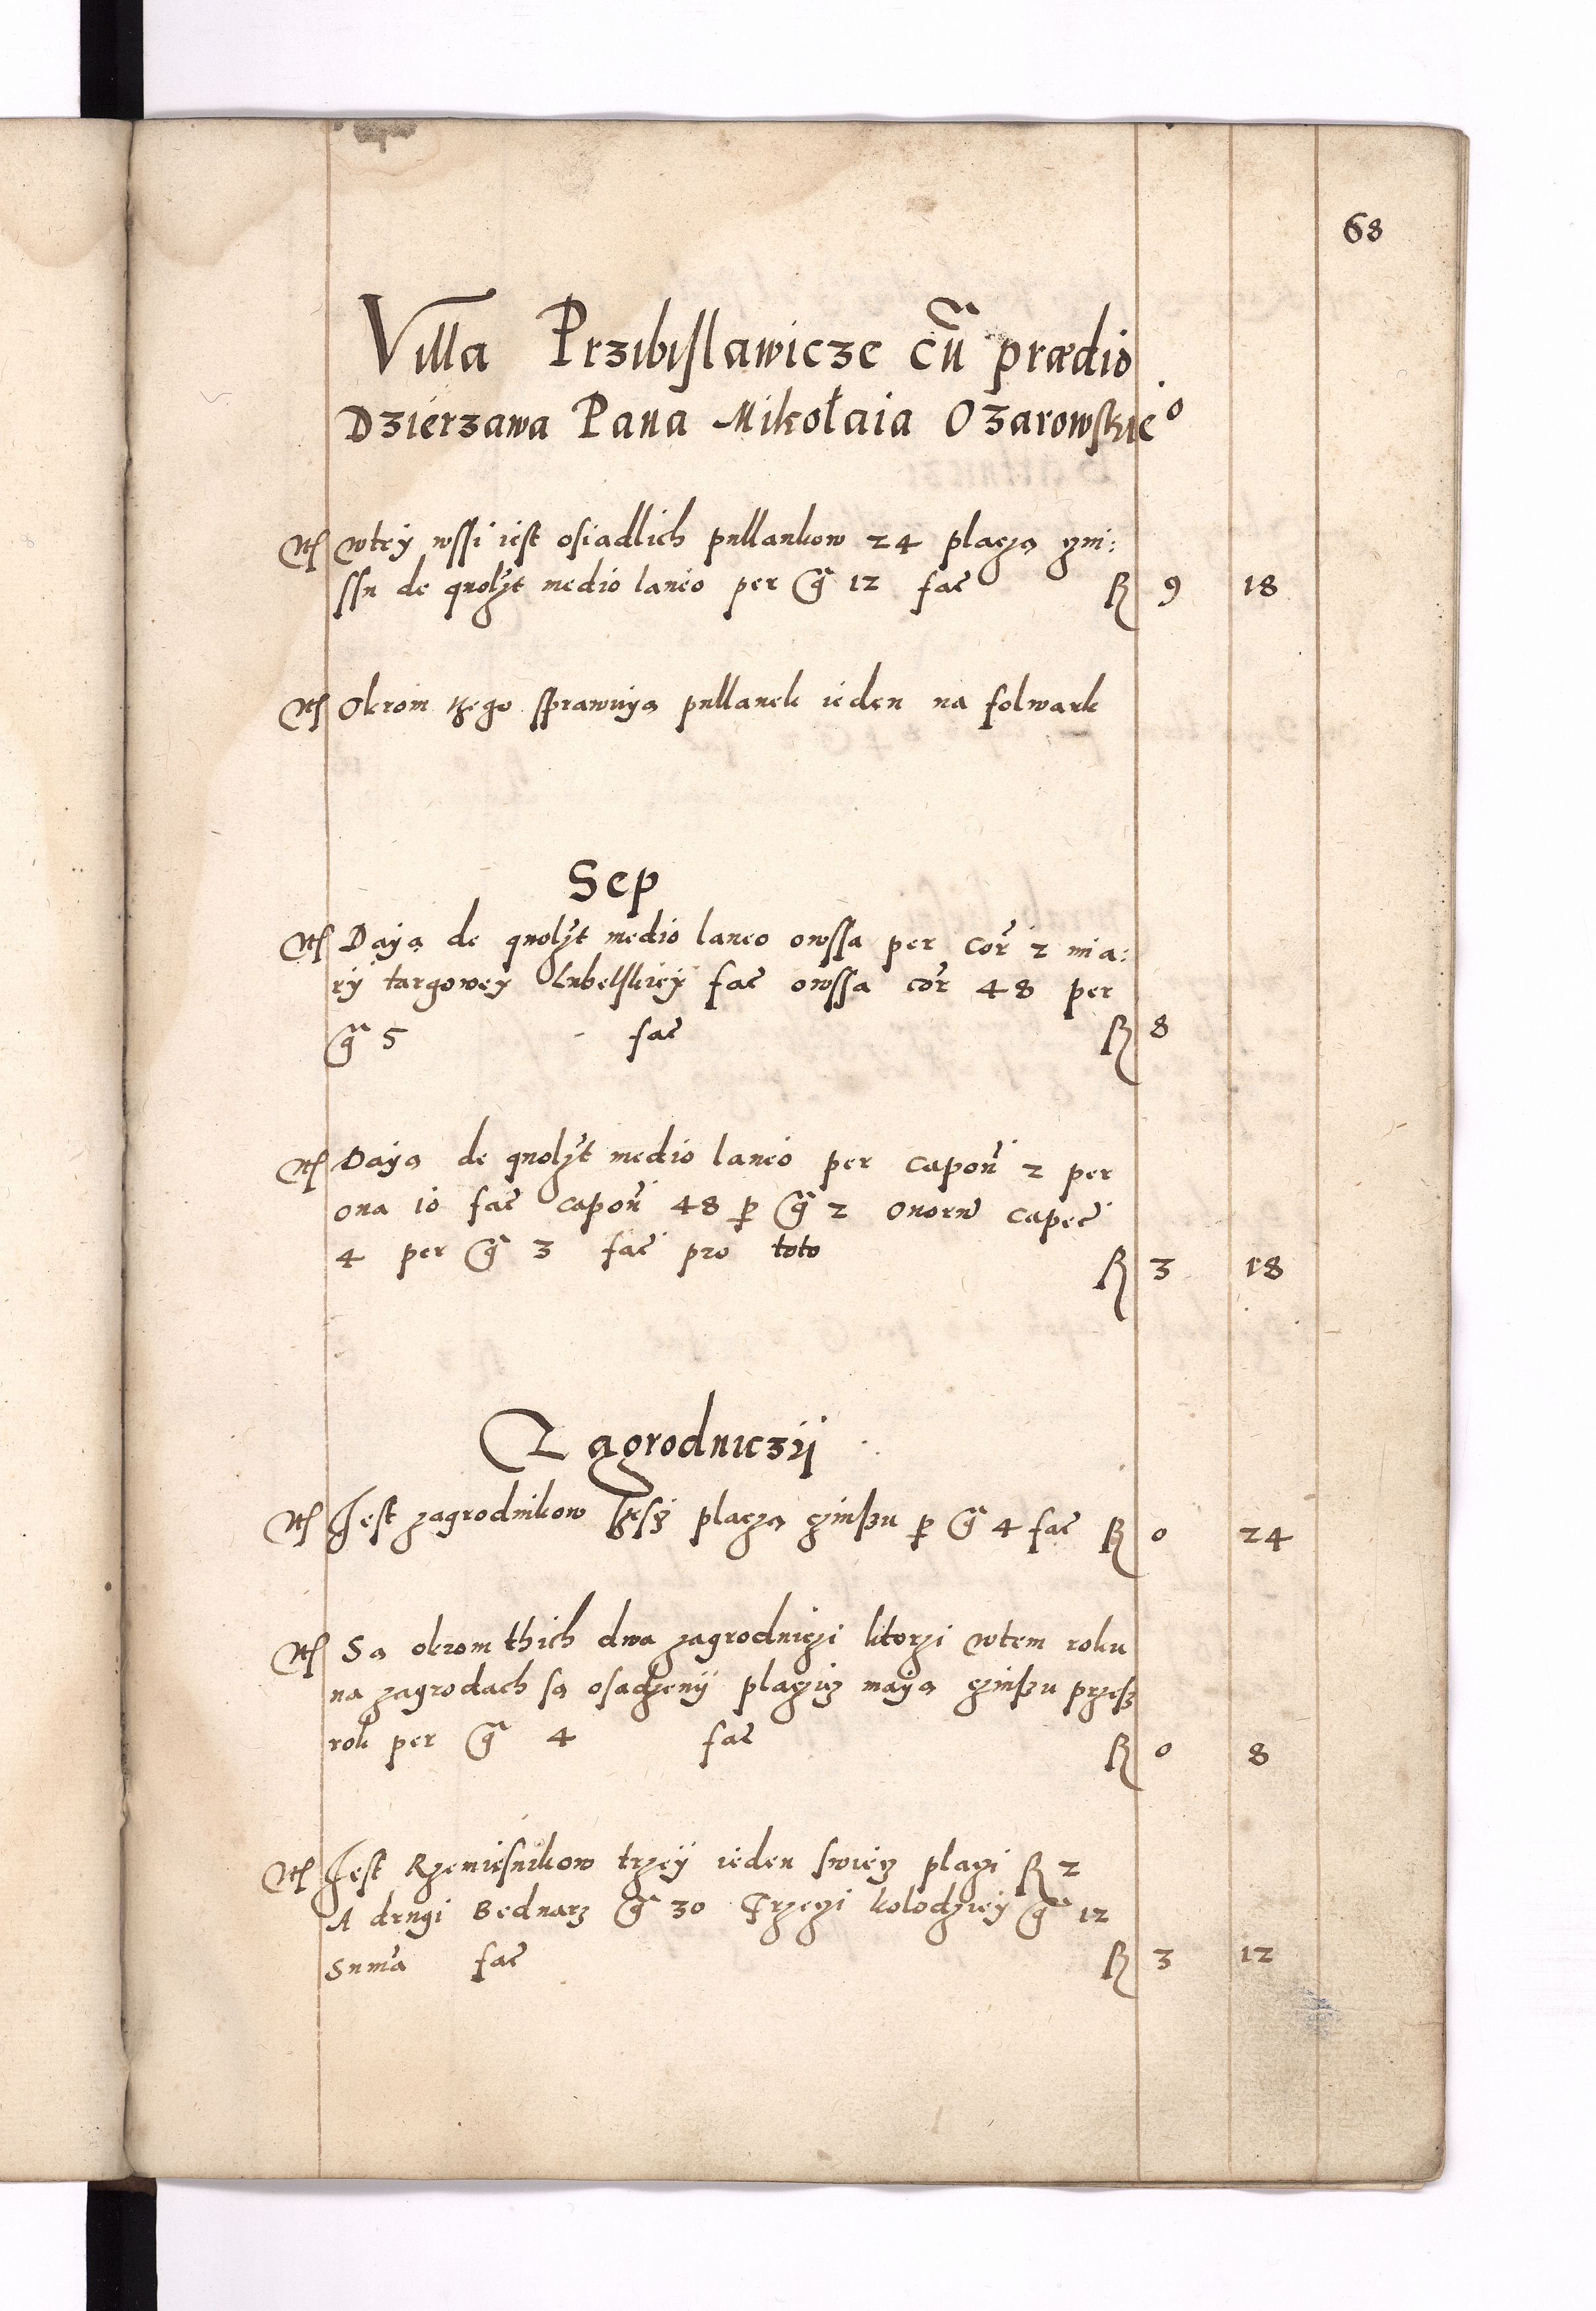 68
Villa Przibislawicze cū prædio
Dzierzawa Pana Mikołaia Ozarowskie°
Itẽ wtey wssi iest osiadlich pullankow 24 placza czin:
ssu de quolz̃t medio laneo per g̃ 12 fac̃ R 9 18
Itẽ Okrom tzego sprawuya pullanek ieden na folwark
Sep
Itẽ Daya de quolz̃t medio laneo owssa per cor̃ 2 mia:
ry targowey Lubelskiey fac̃ owssa cor̃ 48 per
g̃ 5 fac̃ R 8
Itẽ Daya de quolz̃t medio laneo per capoñ 2 per
oua 10 fac̃ capoñ 48 ꝑ g̃ 2 Ouorũ capec̃
4 per g̃ 3 fac̃ pro toto R 3 18
Zagrodniczÿ
Itẽ Jest zagrodnikow placza czinßu ꝑ g̃ 4 fac̃ R 0 24
Itẽ Sa okrom thich dwa zagrodniczi ktorzi wtem roku
na zagrodach sa osadzenÿ placzicz maya czinßu przeß
rok per g̃ 4 fac̃ R 0 8
Itẽ Jest Rzemiesnikow trzeÿ ieden swiecz placzi R 2
A drugi Bednarz g̃ 30 Trzeczi kolodziey g̃ 12
Sum̃a fac̃ R 3 12